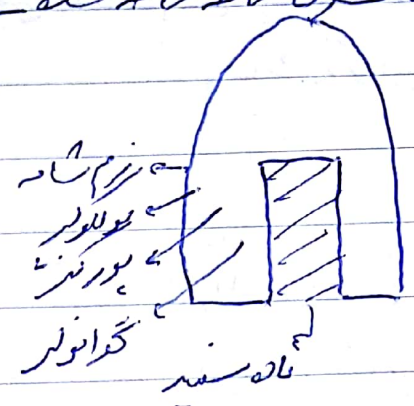 نرم شامه
مولکولر
پورکنژ
گرانولر
ماده سفید